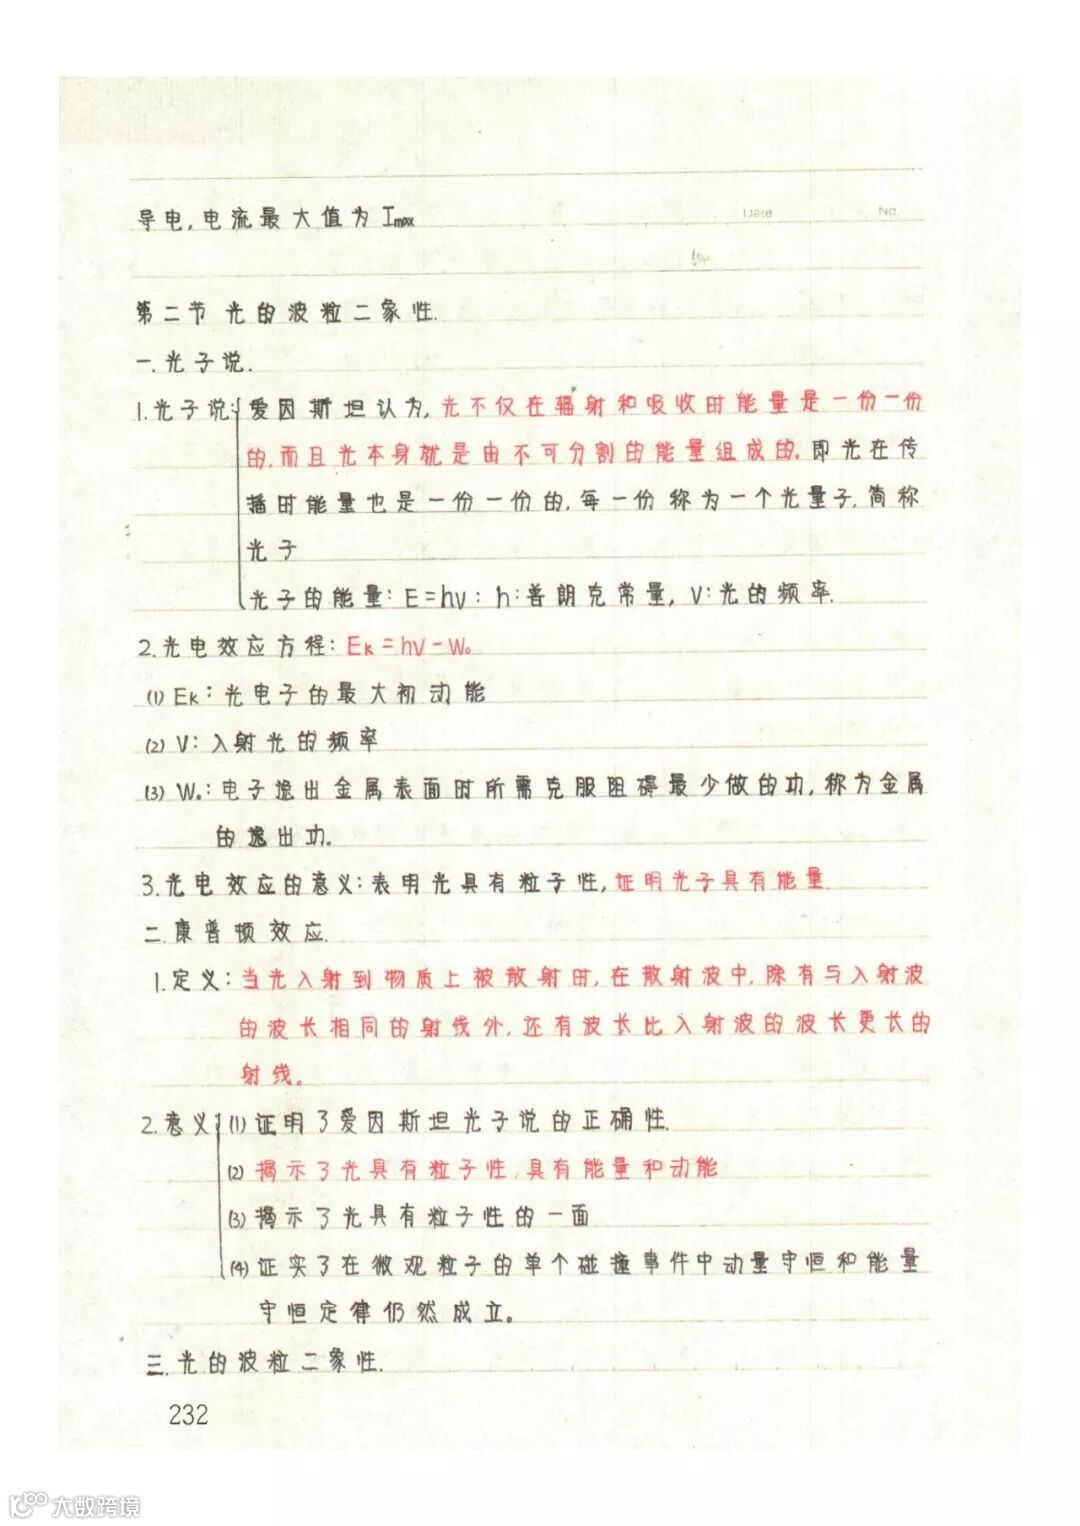 导电,电流最大值为Imax
Date No.
第二节 光的波粒二象性.
一.光子说.
1.光子说:爱因斯坦认为,光不仅在辐射和吸收时能量是一份一份
的,而且光本身就是由不可分割的能量组成的。即光在传
播时能量也是一份一份的,每一份称为一个光量子,简称
光子
光子的能量:E=hν:h:普朗克常量,ν:光的频率.
2.光电效应方程:Ek=hν-W₀
(1) Ek:光电子的最大初动能
(2) ν:入射光的频率
(3) W₀:电子逸出金属表面时所需克服阻碍最少做的功,称为金属
的逸出功.
3.光电效应的意义:表明光具有粒子性,证明光子具有能量.
二.康普顿效应.
1.定义:当光入射到物质上被散射时,在散射波中,除有与入射波
的波长相同的射线外,还有波长比入射波的波长更长的
射线。
2.意义:(1)证明了爱因斯坦光子说的正确性.
(2)揭示了光具有粒子性,具有能量和动能
(3)揭示了光具有粒子性的一面
(4)证实了在微观粒子的单个碰撞事件中动量守恒和能量
守恒定律仍然成立。
三.光的波粒二象性.
232
大数跨境